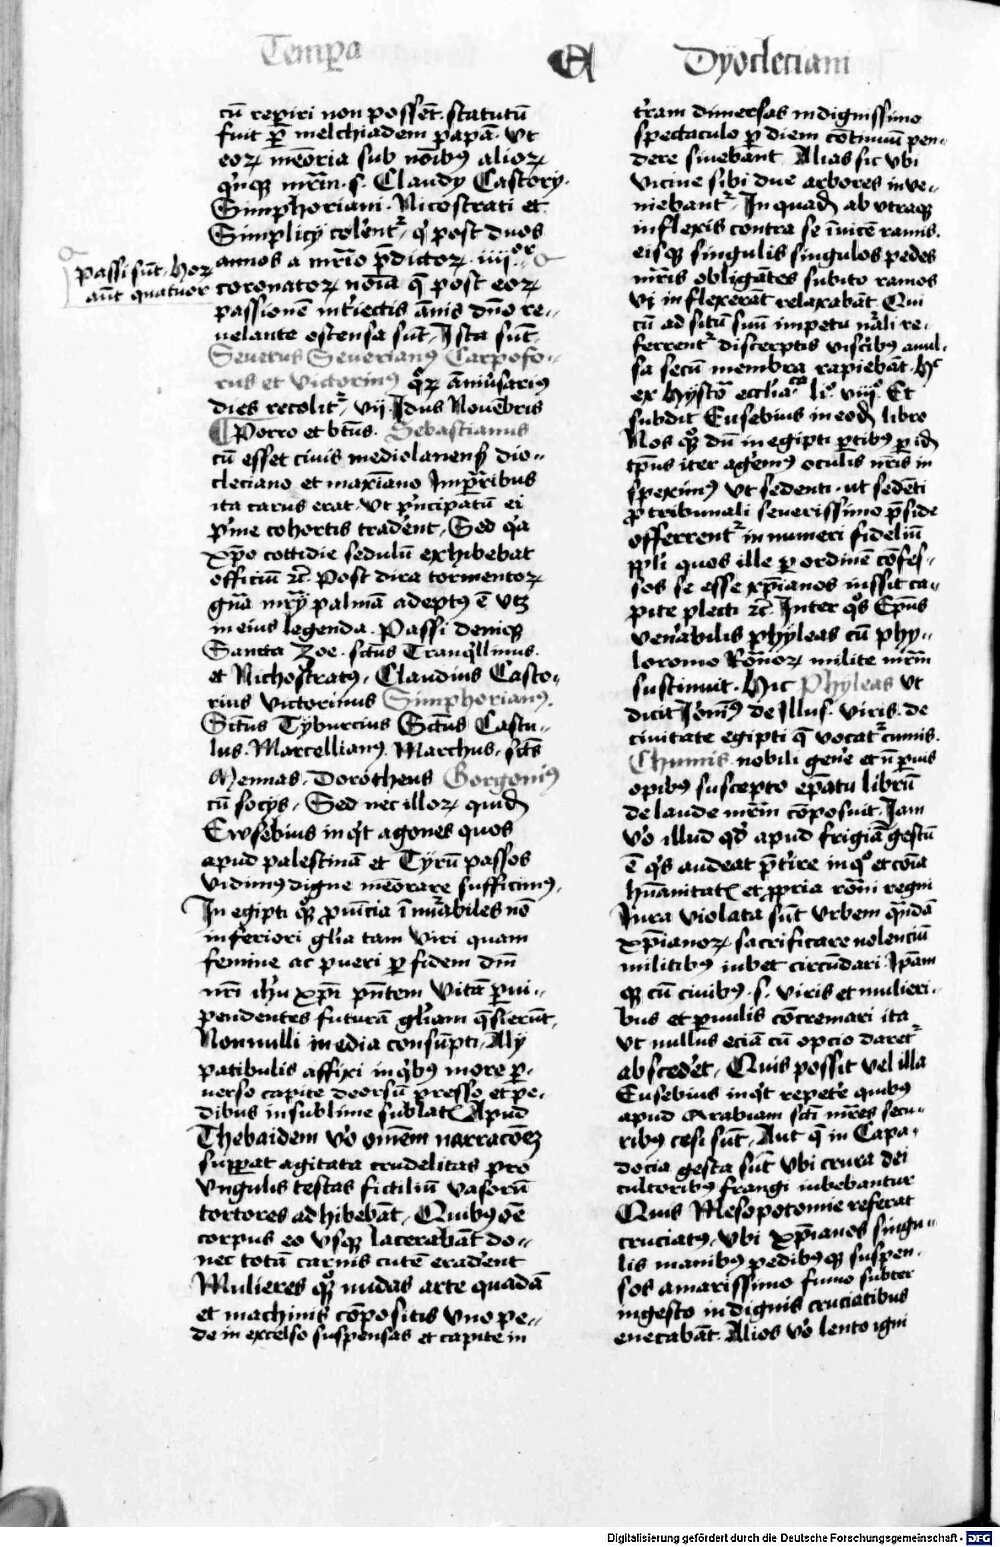 Temp̄a
A
Dyocleciani
cū reperiri non possēt. statutū
fuit p̄ melchiadem papā. Vt
eoꝝ mēoria sub nōibꝰ alioꝝ
qͥnqꝫ mr̄m. s. Claudy Castory.
Simphoriani. Nicostrati et
Simplicij colerēt᷑, qͥ post duos
annos a mr̄io p̄dictoꝝ. iiii.oꝝ
Passi sūt, hoꝝ
aūt quatuor
coronatoꝝ nōīa q̄ post eoꝝ
passionē int̄iectis ānis dn̄o re-
uelante ostensa sūt, Ista sūt.
Seuerus Seuerianꝰ Carpofo-
rus et Victorinꝰ qͦꝝ āniūsariꝰ
dies recolit᷑, vij. Idus Nouēbris
Porro et btūs. Sebastianus
cū esset ciuis mediolanensꝭ dio-
cleciano et maxīano Impr̄ibus
ita carus erat. Vt pͥncipatū ei
pͥme cohortis traderēt, Sed qͥa
xp̄o cottidie sedulū exhibebat
officiū ⁊c̄. Post dira tormentoꝝ
gn̄a mr̄ij palmā adeptꝰ ē vtꝫ
in eius legenda. Passi deniqꝫ
Sancta Zoe. sctūs Tranqͥllinus.
et Nichostratꝰ, Claudius Casto-
rius Victorinus Simphorianꝰ.
Sctūs Tyburcius Sctūs Castu-
lus. Marcellianꝰ, Marchus, sctūs
Mennas. Dorotheus Gorgoniꝰ
cū socijs, Sed nec illoꝝ quidē
Ewsebius inqͥt agones quos
apud palestinā et Tyrū passos
vidimꝰ digne mēorare sufficimꝰ,
In egipti qͦꝫ puīcia īnūabiles nō
inferiori glīa tam viri quam
femine ac pueri p̄ fidem dm̄
nr̄i ihū xp̄i pn̄tem vitā p̄ui-
pendentes futurā glīam q̄sierūt,
Nonnulli in edia consūpti, Alij
patibulis affixi in qͥbꝰ more p̄-
uerso capite deorsū presso et pe-
dibus in sublime sublatꝭ Apud
Thebaidem vͦo omēm narracōeꝫ
sup̄at agitata crudelitas pro
vngulis testas fictiliū vasorū
tortores adhibebāt, Quibꝰ oē
corpus eo vsqꝫ lacerabāt do-
nec totā carnis cutē eraderēt
Mulieres qͦꝫ nudas arte quadā
et machinis cōpositis vno pe-
de in excelso suspensas et capite in
tr̄am dimersas indignissimo
spectaculo p̄ diem cōtinuū pen-
dere sinebant Alias sic vbi
vicine sibi due arbores inve-
niebant᷑, In quadā ab vtraqꝫ
inflexis contra se īuicē ramis.
eisqꝫ singulis singulos pedes
mr̄is obligātes subito ramos
vi inflexerāt relaxabāt. Qui
cū ad sitū suū impetu nr̄ali re-
ferrent᷑ discerptis viscībꝰ auul-
sa secū membra rapiebāt. H̄
ex hystoͬ eccliāca liͦ. viijͦ. Et
subdit Eusebius in eodē libro
Nos qͦꝫ dū in egipti p̄tibꝰ p̄ idē
tp̄us iter agerēmꝰ oculis nr̄is in
speximꝰ Vt sedenti. ut sedēti
p̄ tribunali seuerissimo p̄side
offerrent᷑ innumeri fideliū
pp̄li quos ille p̄ ordinē cōfes-
sos se esse xp̄ianos iussit ca-
pite plecti ⁊c̄. Inter qͦs Epūs
venerabilis phyleas cū phy-
loromo Romnoꝝ milite mr̄m
sustinuit. Hic Phyleas vt
dicit Ieronīꝰ de Illus. viris. de
ciuitate egipti q̄ vocat᷑ cumis.
Thumis. nobili genere et n̄ puis
opibꝰ suscepto epātu librū
de laude mr̄m cōposuit. Iam
vͦo illud qd̄ apud frigiā gestū
ē qͥs audeat p̄tire in qͦ et cōia
hūanitatꝭ et propria romāi regni
Iura violata sūt vrbem quādā
xp̄ianoꝝ sacrificare nolenciū
militibꝰ iubet circūdari. Ipām
qꝫ cū ciuibꝰ. s. viris et mulieri-
bus et paruulis cōcremari ita
vt nullus eciā cū opcio daret᷑
abscederet, Quis possit vel illa
Eusebius inqͥt repetere quibꝰ
apud Arabiam sctī mr̄es secu-
ribꝰ cesi sūt, Aut q̄ in Capa-
docia gesta sūt vbi crura dei
cultoribꝰ frangi iubebantur
Quis Mesopotomie referat
cruciatꝰ, vbi xp̄ianos singu-
lis manibꝰ pedibusqꝫ suspen-
sos amarissimo fumo subter
ingesto indignis cruciatibus
enecabāt. Alios vͦo lento igni
Digitalisierung gefördert durch die Deutsche Forschungsgemeinschaft - DFG